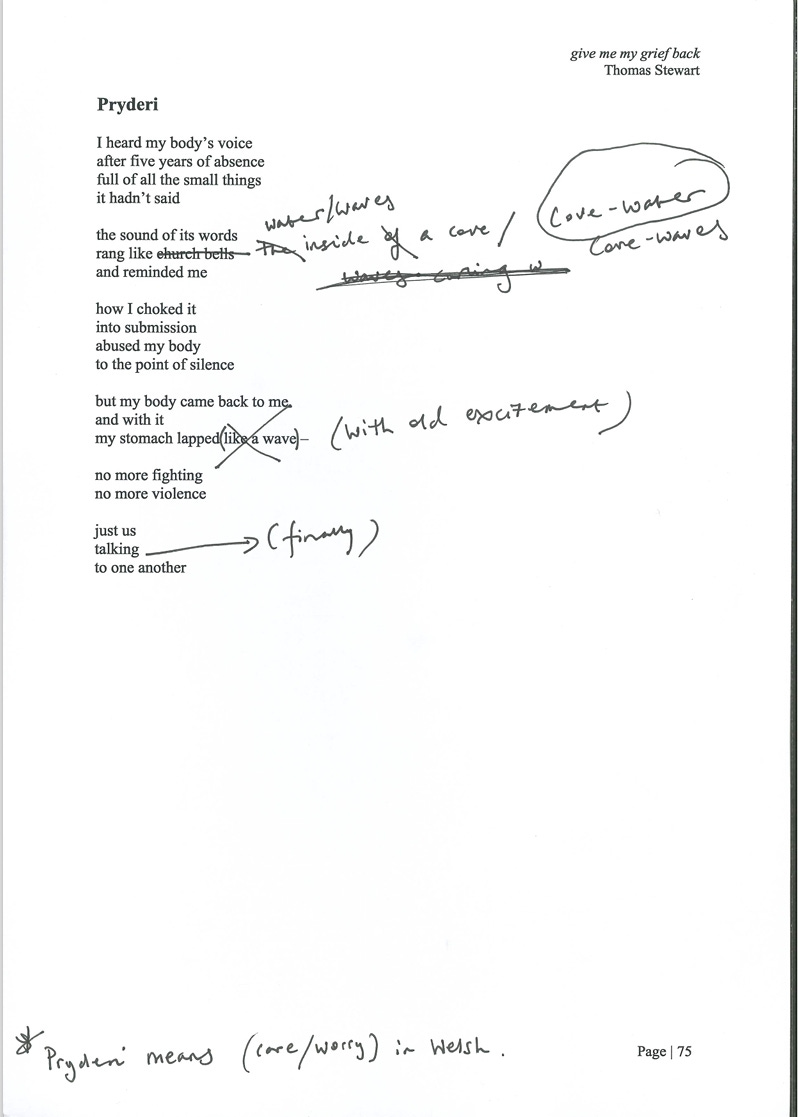 give me my grief back
Thomas Stewart
Pryderi
I heard my body's voice
after five years of absence
full of all the small things
it hadn't said
water/waves
the sound of its words
rang like church bells The inside of a cove / Cove-water
Cove-waves
and reminded me
waves coming w
how I choked it
into submission
abused my body
to the point of silence
but my body came back to me.
and with it
my stomach lapped (like a wave) – (with old excitement)
no more fighting
no more violence
just us
talking (finally)
to one another
* Pryderi means (care/worry) in Welsh.
Page | 75